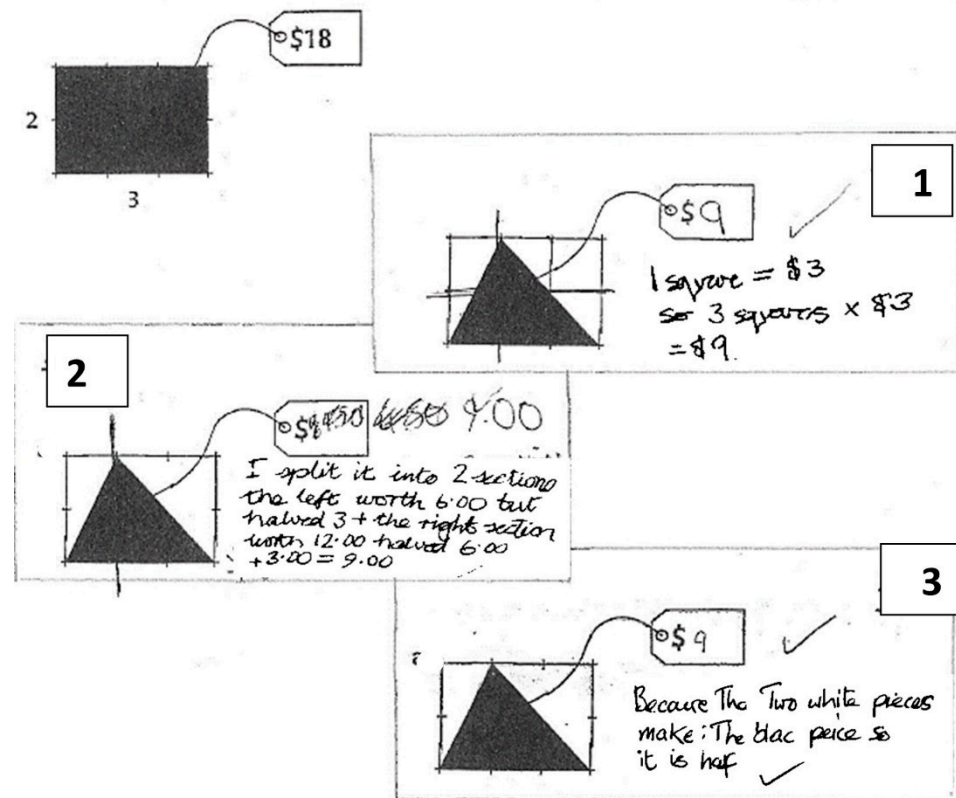 $18
2
3
1
$9
1 square = $3
so 3 squares × $3
= $9.
2
$
9.00
I split it into 2 sections
the left worth 6.00 but
halved 3 + the right section
worth 12.00 halved 6.00
+3.00 = 9.00
3
$9
Because The Two white pieces
make: The blac peice so
it is half